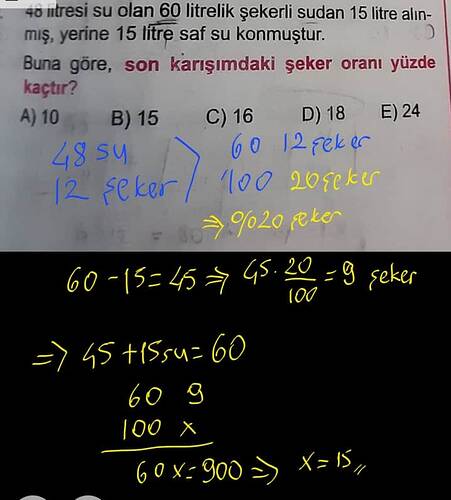 48 litresi su olan 60 litrelik şekerli sudan 15 litre alın-
mış, yerine 15 litre saf su konmuştur.
Buna göre, son karışımdaki şeker oranı yüzde
kaçtır?
A) 10 B) 15 C) 16 D) 18 E) 24
48 su 60 12 şeker
12 şeker 100 20 şeker
⇒ %20 şeker
60 - 15 = 45 ⇒ 45 · 20/100 = 9 şeker
⇒ 45 + 15 su = 60
60 9
100 x
60x = 900 ⇒ x = 15 //